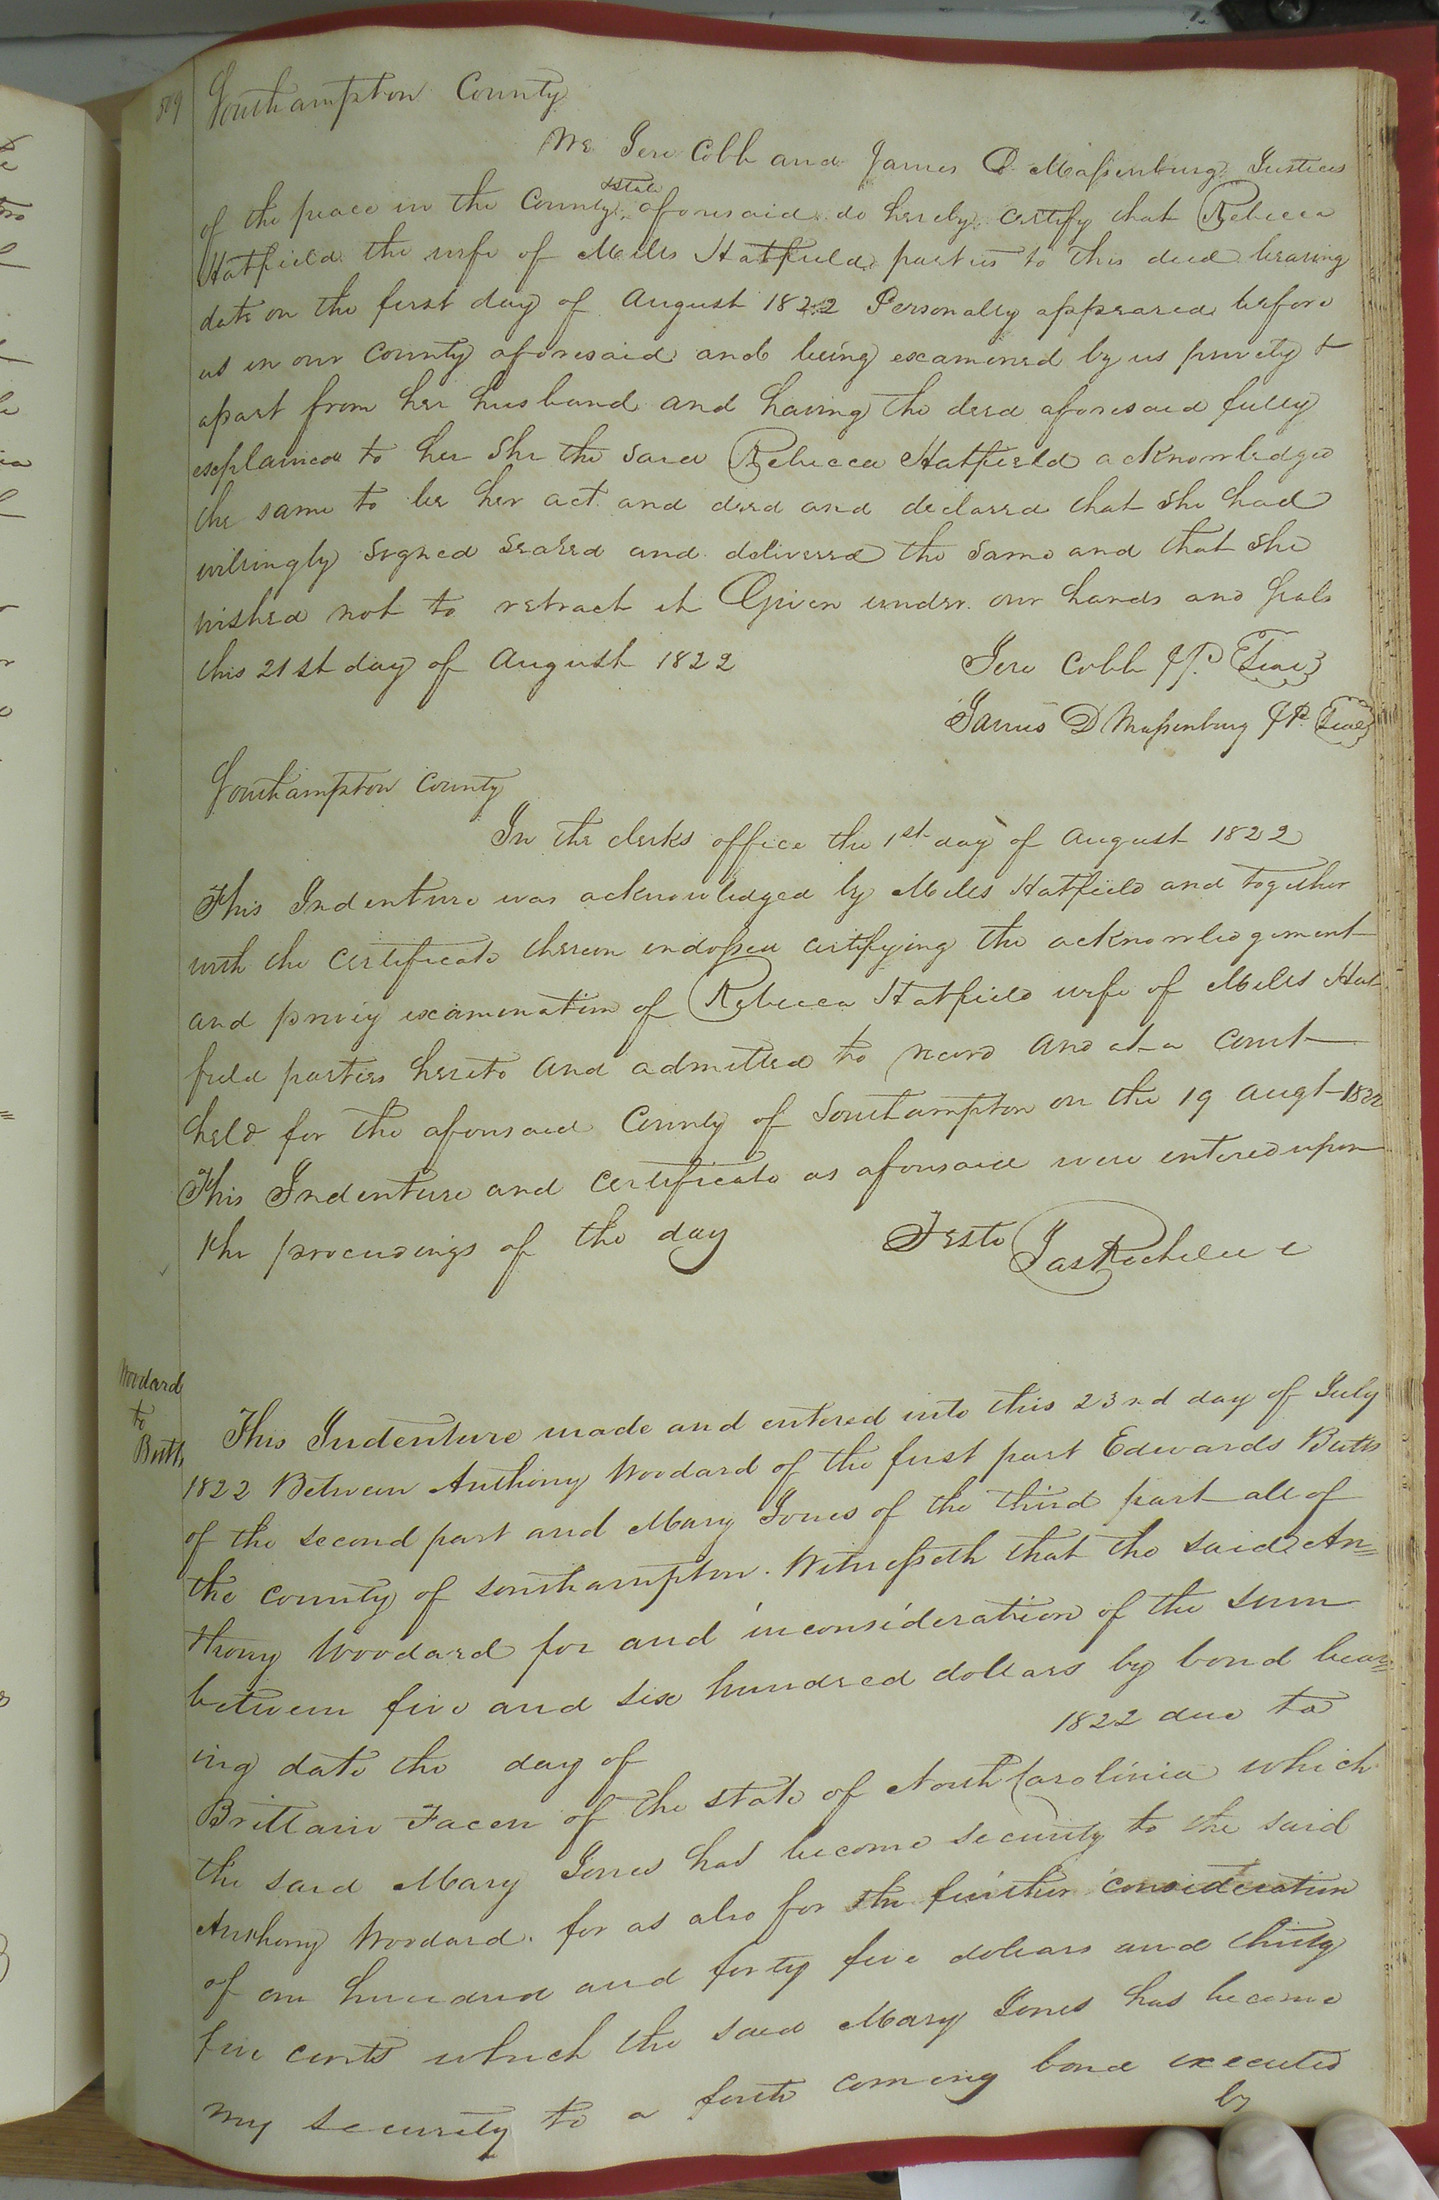 509
Southampton County
We Jere Cobb and James D. Massenburg Justices
of the peace in the County & State aforesaid do hereby certify that Rebecca
Hatfield the wife of Mills Hatfield parties to this deed bearing
date on the first day of August 1822 Personally appeared before
us in our County aforesaid and being examined by us privily &
apart from her husband and having the deed aforesaid fully
explained to her She the said Rebecca Hatfield acknowledged
the same to be her act and deed and declared that she had
willingly signed sealed and delivered the same and that she
wished not to retract it Given under our hands and seals
this 21st day of August 1822 Jere Cobb JP. Seal
James D Massenburg JP. Seal
Southampton County
In the clerks office the 1st day of August 1822
This Indenture was acknowledged by Mills Hatfield and together
with the certificate thereon endorsed certifying the acknowledgement
and privy examination of Rebecca Hatfield wife of Mills Hat
field parties hereto and admitted to record and at a Court
held for the aforesaid County of Southampton on the 19 augt 1822
This Indenture and certificate as aforesaid were entered upon
the proceedings of the day Teste Jas Rochelle c
Woodard
to
Butts
This Indenture made and entered into this 23rd day of July
1822 Between Anthony Woodard of the first part Edwards Butts
of the second part and Mary Jones of the third part all of
the county of Southampton. Witnesseth that the said An=
thony Woodard for and in consideration of the sum
between five and six hundred dollars by bond bear=
ing date the day of 1822 due to
Brittain of the state of North Carolinia which
the said Mary Jones has become security to the said
Anthony Woodard. for as also for the further consideration
of one hundred and forty five dollars and thirty
five cents which the said Mary Jones has become
my security to a forth coming bond executed
by